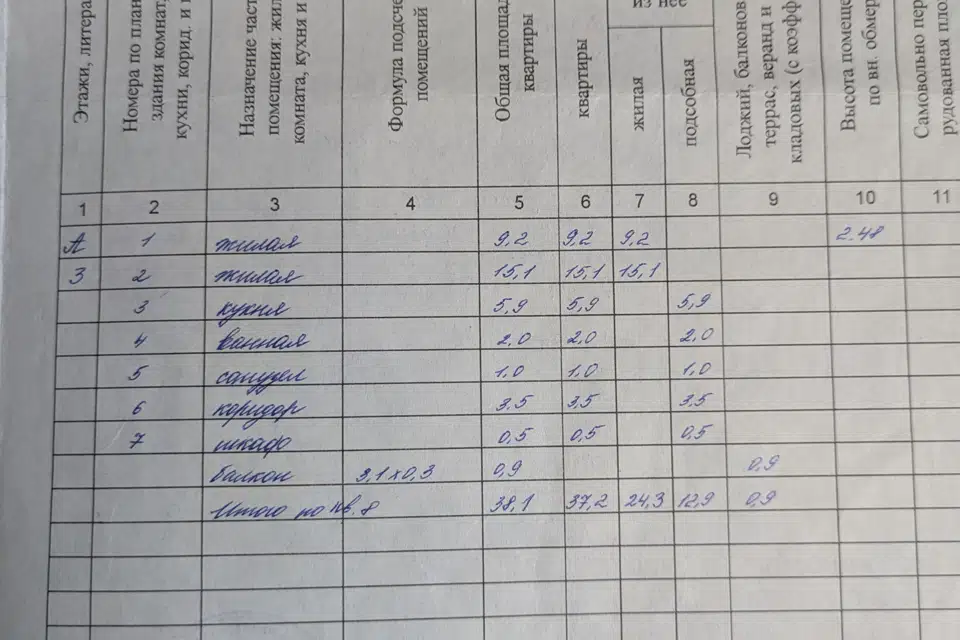 Этажи, литера
Номера по план
здания комнат,
кухни, корид. и
Назначение част
помещения: жил
комната, кухня и
Формула подсче
помещений
Общая площад
квартиры
квартиры
из нее
жилая
подсобная
Лоджий, балконов
террас, веранд и
кладовых (с коэфф
Высота помеще
по вн. обмер
Самовольно пер
рудованная пло
1 2 3 4 5 6 7 8 9 10 11
А 1 жилая 9,2 9,2 9,2 2.48
3 2 жилая 15,1 15,1 15,1
3 кухня 5,9 5,9 5,9
4 ванная 2,0 2,0 2,0
5 санузел 1,0 1,0 1,0
6 коридор 3.5 3,5 3,5
7 шкаф 0,5 0,5 0,5
балкон 3,1х0,3 0,9 0,9
Итого по кв. 8 38,1 37,2 24,3 12,9 0,9